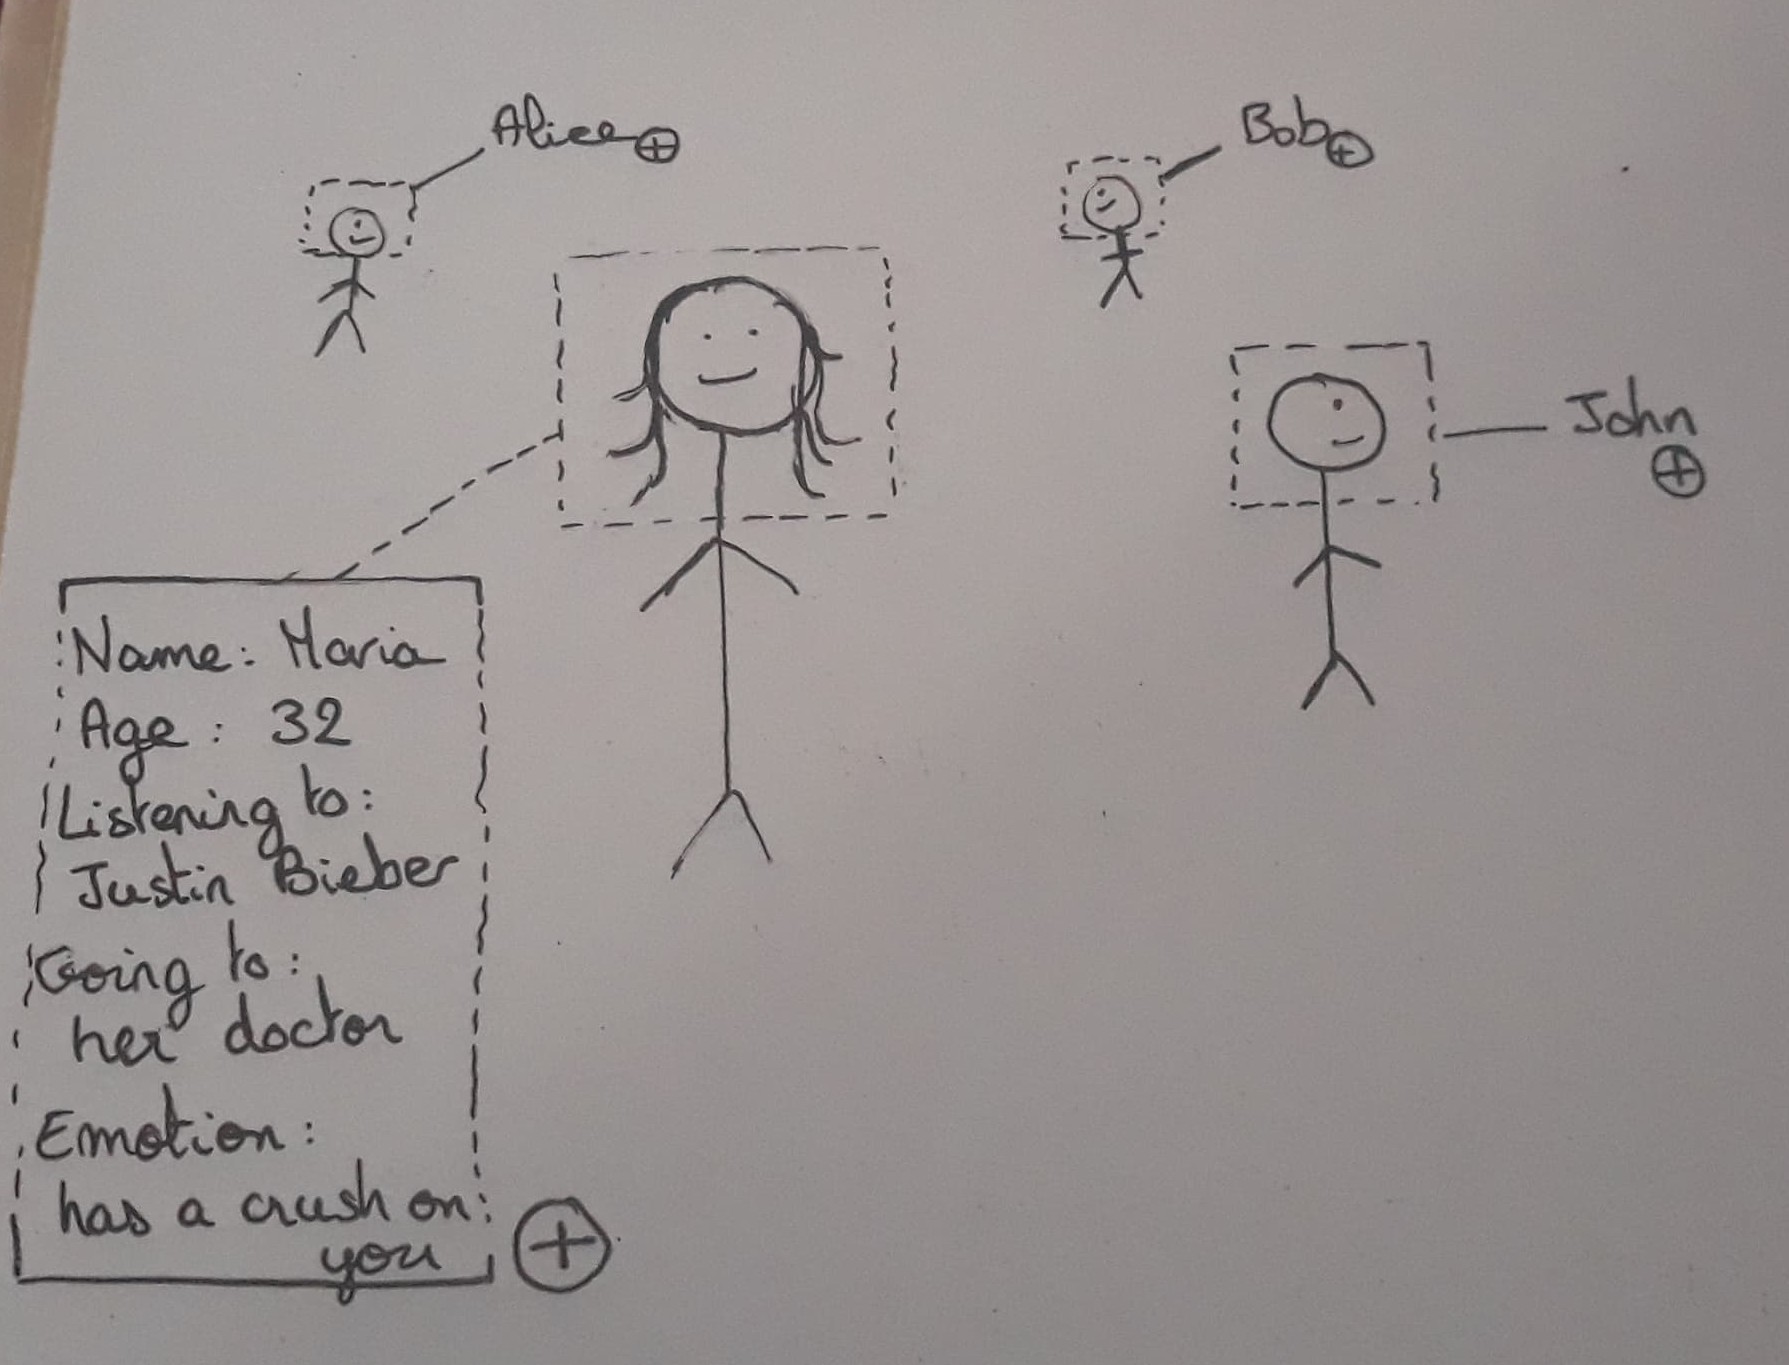 Alice
Bob
John
Name: Maria
Age: 32
Listening to:
Justin Bieber
Going to:
her doctor
Emotion:
has a crush on
you